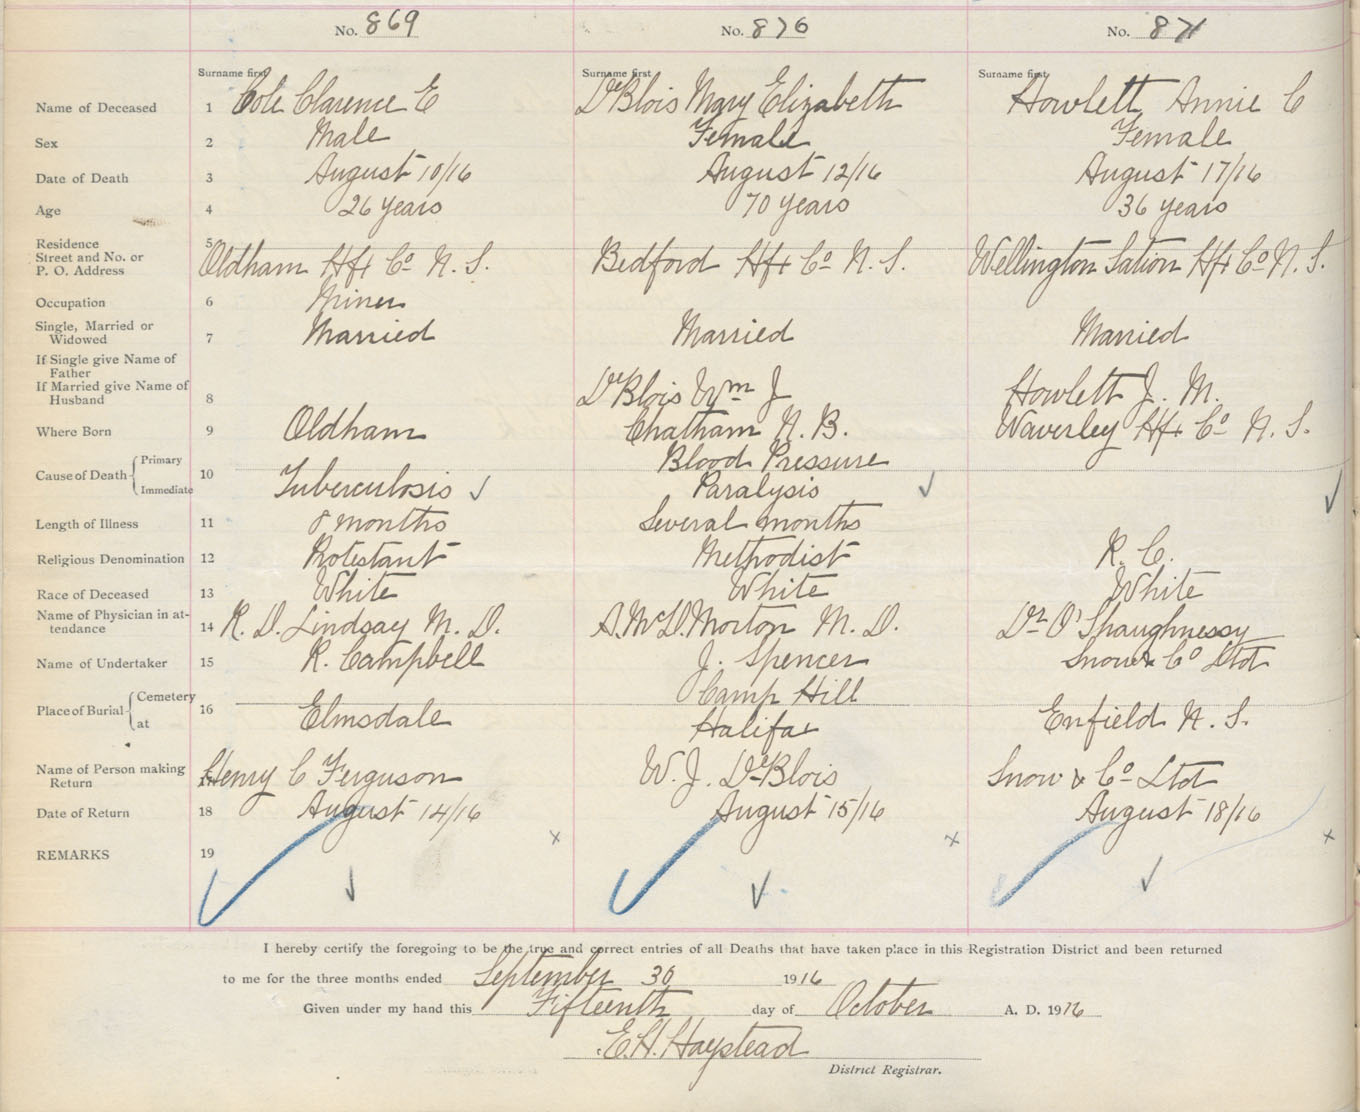 No. 869 No. 870 No. 871
Surname first Surname first Surname first
Name of Deceased 1 Cole Clarence E DeBlois Mary Elizabeth Howlett Annie C
Sex 2 Male Female Female
Date of Death 3 August 10/16 August 12/16 August 17/16
Age 4 26 years 70 years 36 years
Residence 5
Street and No. or
P. O. Address Oldham Hfx Co N. S. Bedford Hfx Co N. S. Wellington Sation Hfx Co N. S.
Occupation 6 Miner
Single, Married or
Widowed 7 Married Married Married
If Single give Name of
Father
If Married give Name of
Husband 8 DeBlois Wm J Howlett J. M.
Where Born 9 Oldham Chatham N. B. Waverley Hfx Co N. S.
Cause of Death Primary 10 Blood Pressure
Immediate Tuberculosis Paralysis
Length of Illness 11 8 months Several months
Religious Denomination 12 Protestant Methodist R. C.
Race of Deceased 13 White White White
Name of Physician in at-
tendance 14 R. D. Lindsay M. D. A. McD. Morton M. D. Dr O'Shaughnessy
Name of Undertaker 15 R. Campbell J. Spencer Snow & Co Ltd
Place of Burial Cemetery 16 Camp Hill
at Elmsdale Halifax Enfield N. S.
Name of Person making
Return 17 Henry C Ferguson W. J. DeBlois Snow & Co Ltd
Date of Return 18 August 14/16 August 15/16 August 18/16
REMARKS 19
I hereby certify the foregoing to be the true and correct entries of all Deaths that have taken place in this Registration District and been returned
to me for the three months ended September 30 1916
Given under my hand this Fifteenth day of October A. D. 1916
E. H. Haystead
District Registrar.